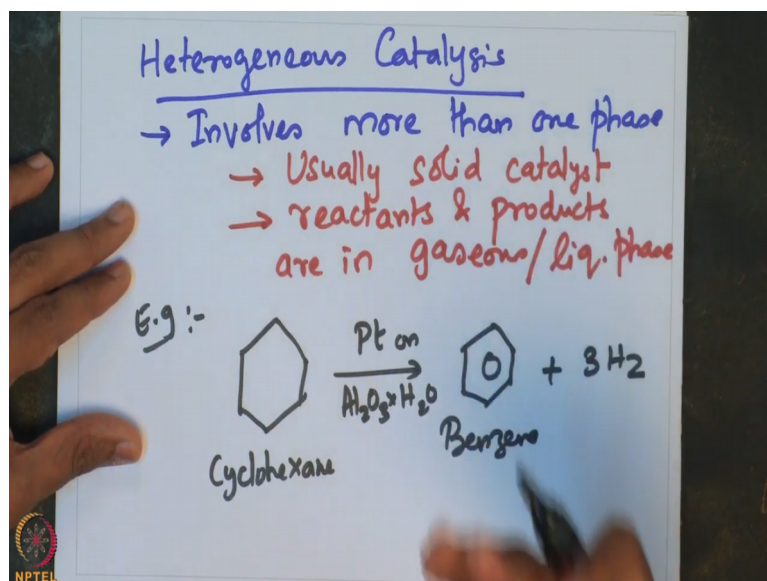 Heterogeneous Catalysis
→ Involves more than one phase
→ Usually solid catalyst
→ reactants & products
are in gaseous/liq. phase
E.g :-
Pt on
Al2O3xH2O
+ 3H2
Cyclohexane
Benzene
NPTEL